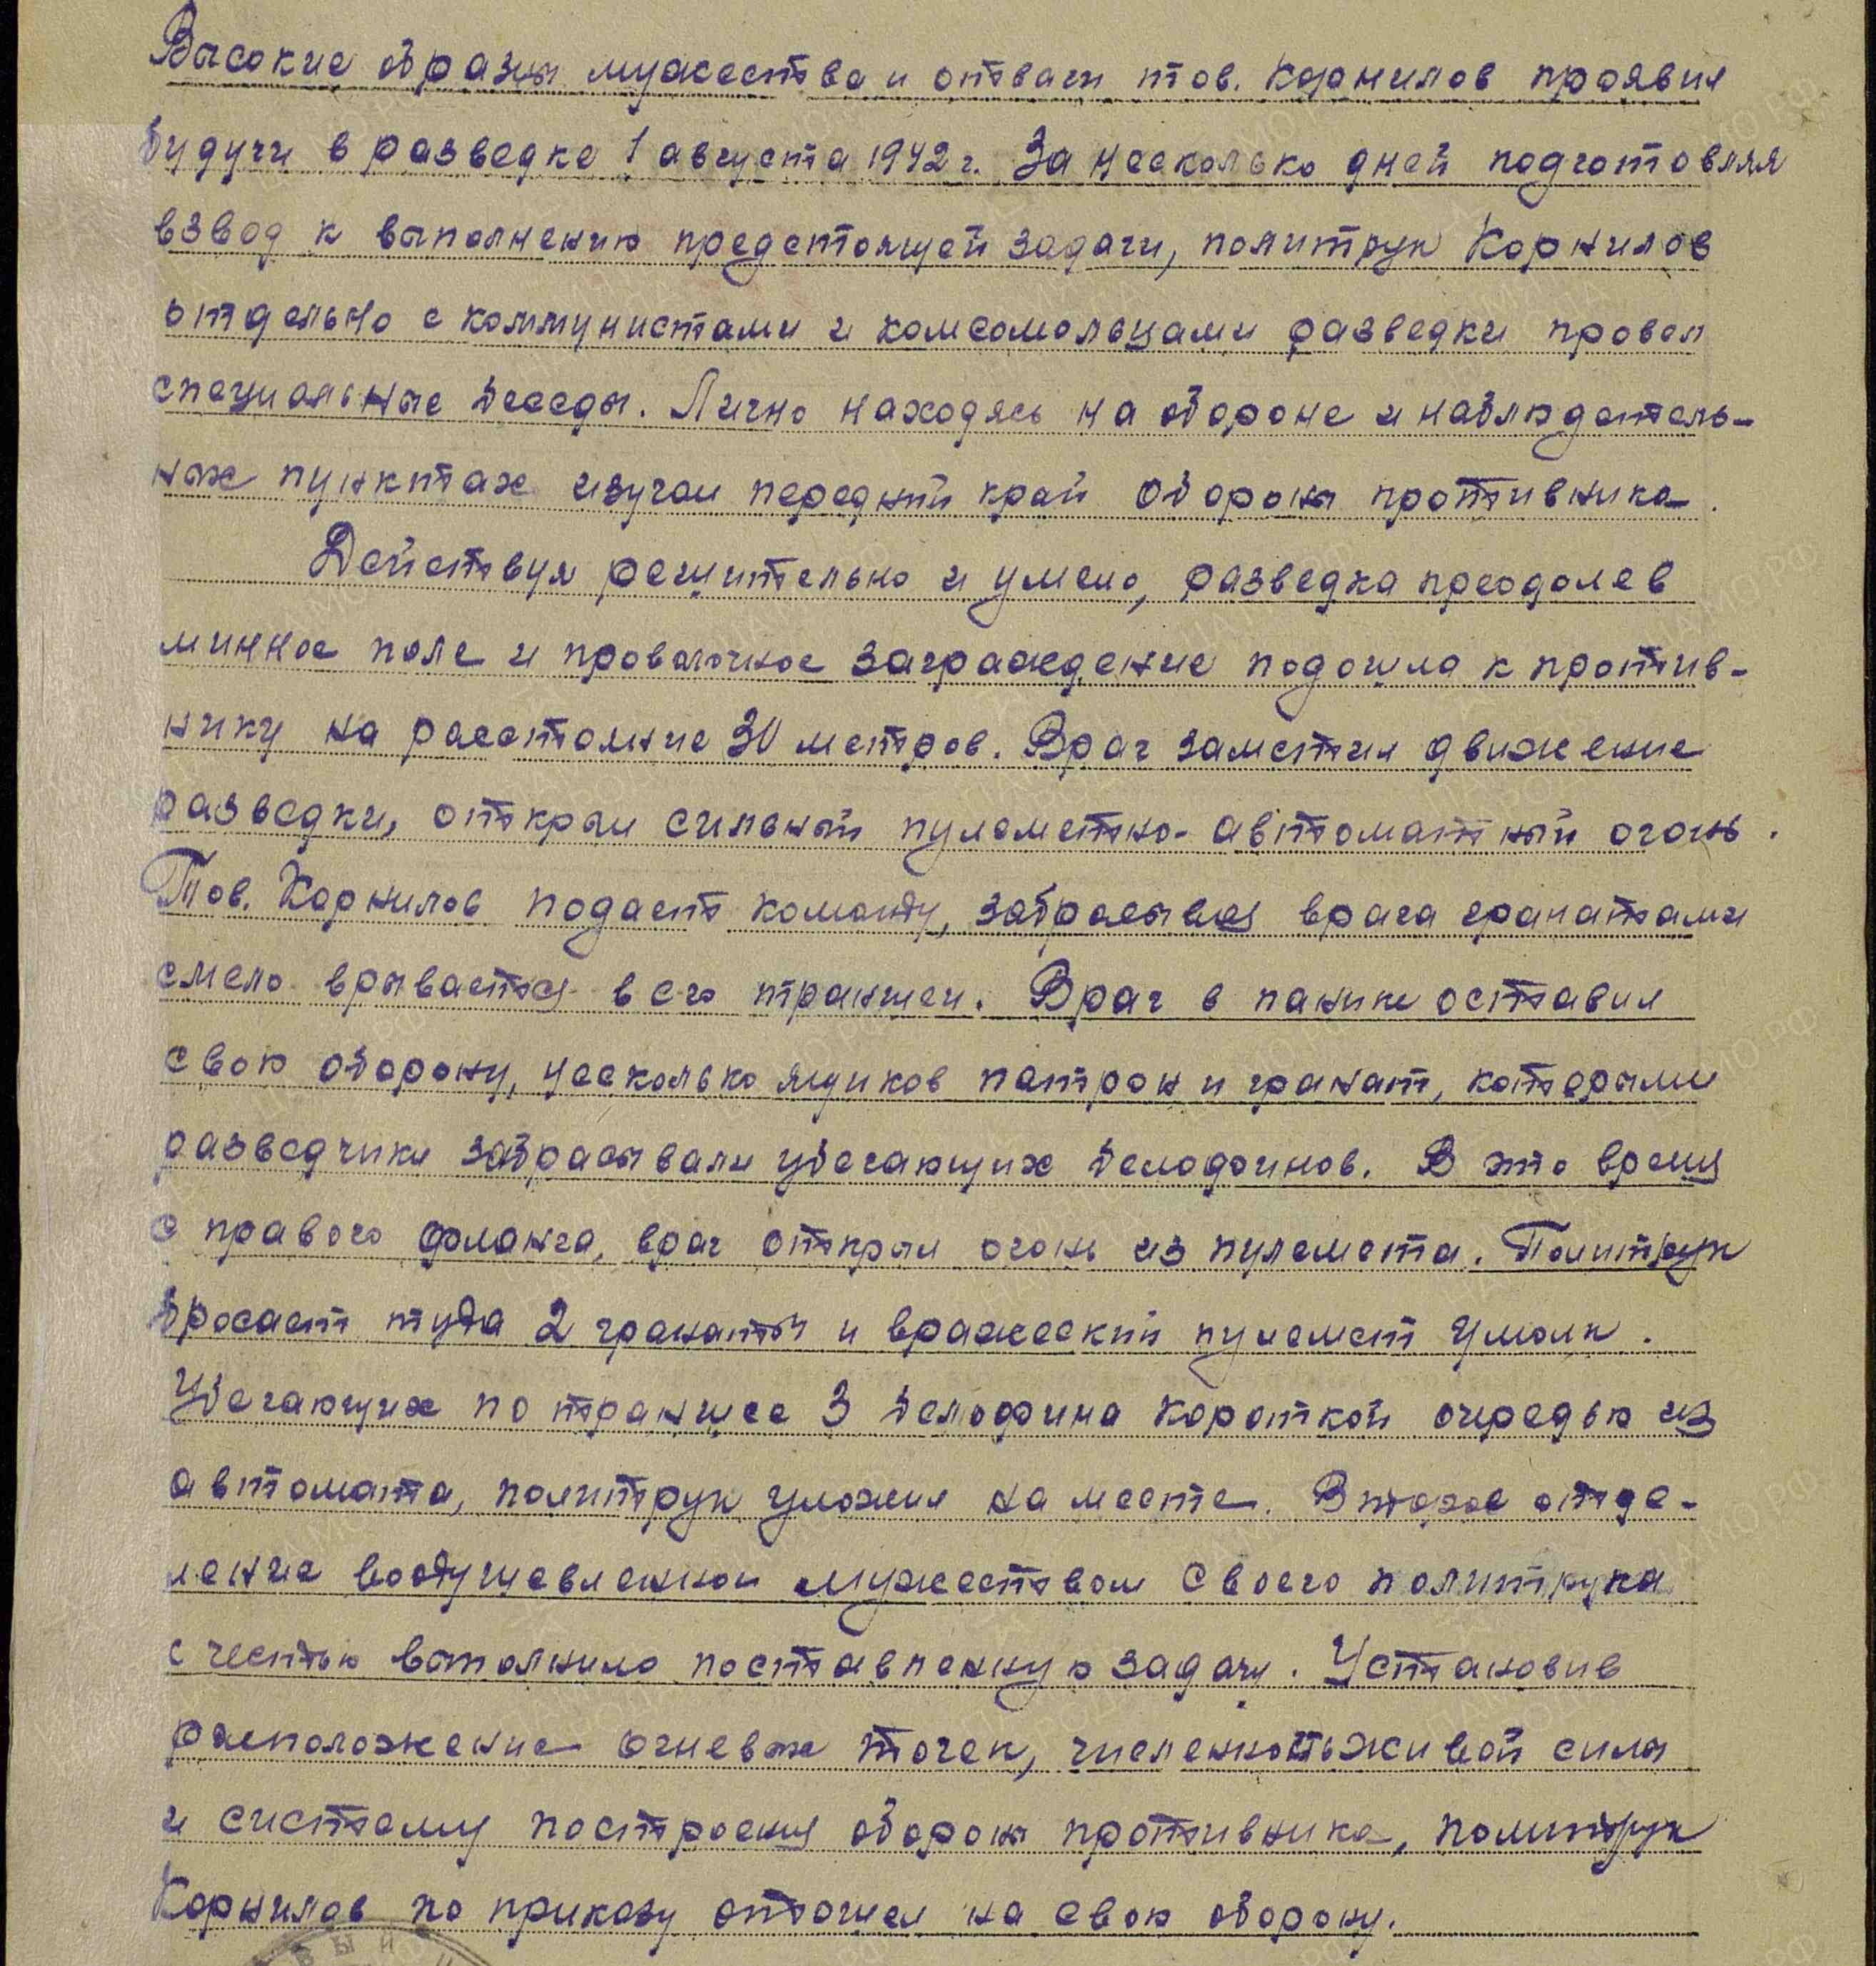 Высокие образцы мужества и отваги тов. Корнилов проявил
будучи в разведке 1 августа 1942 г. За несколько дней подготовляя
взвод к выполнению предстоящей задачи, политрук Корнилов
отдельно с коммунистами и комсомольцами разведки провел
специальные беседы. Лично находясь на обороне и наблюдатель-
ных пунктах изучал передний край обороны противника.
Действуя решительно и умело, разведка преодолев
минное поле и проволочное заграждение подошла к против-
нику на расстояние 30 метров. Враг заметил движение
разведки, открыл сильный пулеметно-автоматный огонь.
Тов. Корнилов подает команду, забрасывая врага гранатами
смело врывается в его траншеи. Враг в панике оставил
свою оборону, несколько ящиков патрон и гранат, которыми
разведчики забрасывали убегающих белофинов. В это время
с правого фланга, враг открыл огонь из пулемета. Политрук
бросает туда 2 гранаты и вражеский пулемет умолк.
Убегающих по траншее 3 белофина короткой очередью из
автомата, политрук уложил на месте. Второе отде-
ление воодушевленное мужеством своего политрука
с честью выполнило поставленную задачу. Установив
расположение огневых точек, численность живой силы
и систему построения обороны противника, политрук
Корнилов по приказу отошел на свою оборону.